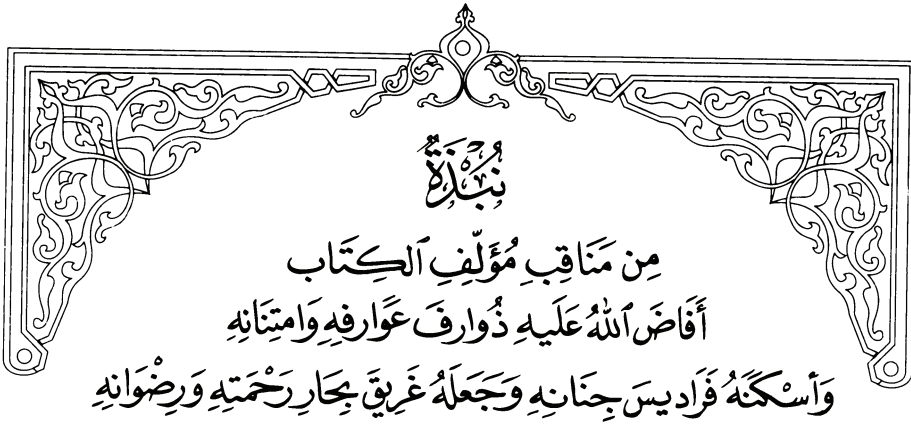 نُبْذَةٌ
مِن مَنَاقِبِ مُؤَلِّفِ ٱلكِتَاب
أَفَاضَ ٱللهُ عَلَيهِ ذُوارِفَ عَوَارفِهِ وَامتِنَانِهِ
وَأسْكَنَهُ فَرَاديسَ جِنَانِهِ وَجَعَلَهُ غَرِيقَ بِحَارِ رَحْمَتِهِ وَرِضْوَانِهِ